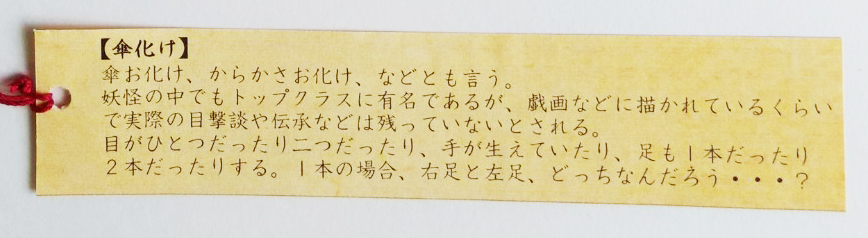 【傘化け】
傘お化け、からかさお化け、などとも言う。
妖怪の中でもトップクラスに有名であるが、戯画などに描かれているくらい
で実際の目撃談や伝承などは残っていないとされる。
目がひとつだったり二つだったり、手が生えていたり、足も1本だったり
2本だったりする。1本の場合、右足と左足、どっちなんだろう・・・?